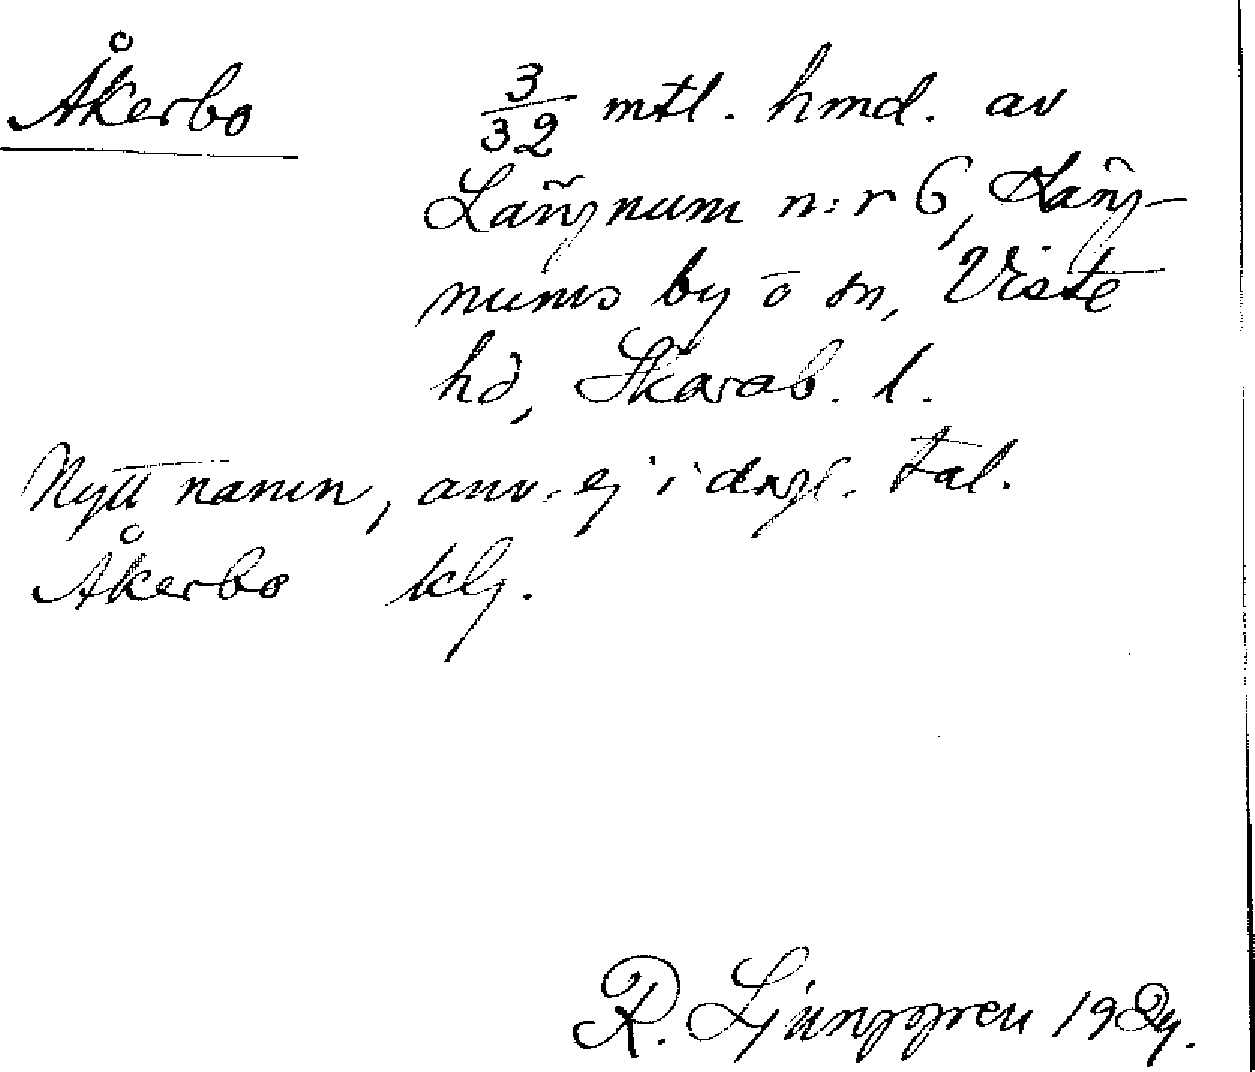 Åkerbo 3/32 mtl. hmd. av
Längnum n:r 6, Läng-
nums by o sn, Viste
hd, Skarab. l.
Nytt namn, anv. ej i dagl. tal.
Åkerbo klg.
R. Ljunggren 1924.